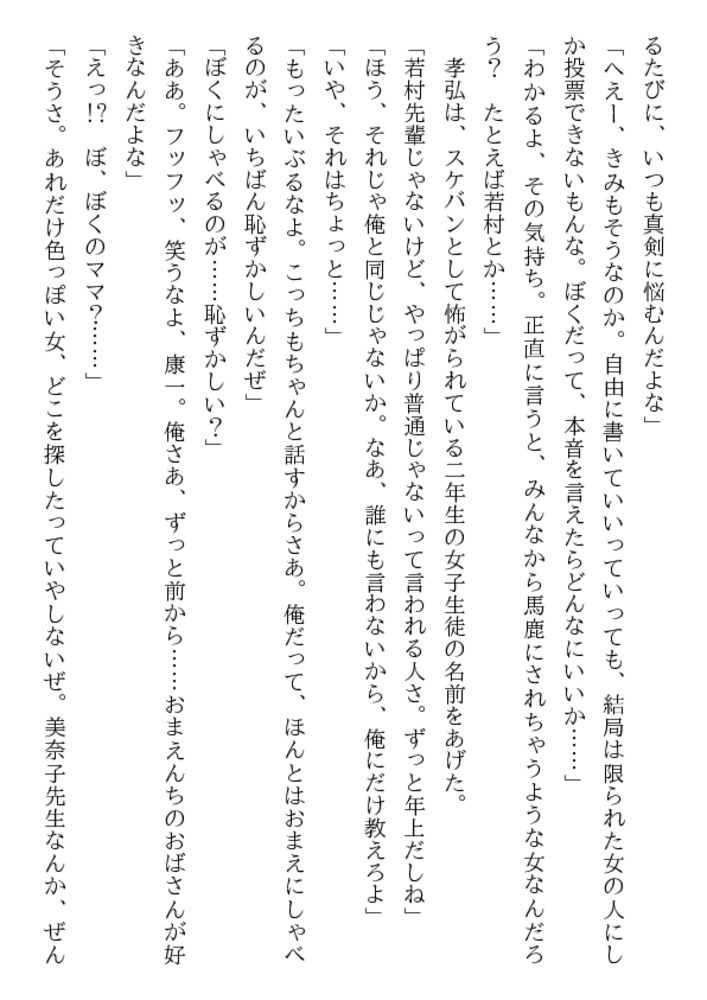 るたびに、いつも真剣に悩むんだよな」
「へえー、きみもそうなのか。自由に書いていいっていっても、結局は限られた女の人にし
か投票できないもんな。ぼくだって、本音を言えたらどんなにいいか……」
「わかるよ、その気持ち。正直に言うと、みんなから馬鹿にされちゃうような女なんだろ
う？　たとえば若村とか……」
　孝弘は、スケバンとして怖がられている二年生の女子生徒の名前をあげた。
「若村先輩じゃないけど、やっぱり普通じゃないって言われる人さ。ずっと年上だしね」
「ほう、それじゃ俺と同じじゃないか。なあ、誰にも言わないから、俺にだけ教えろよ」
「いや、それはちょっと……」
「もったいぶるなよ。こっちもちゃんと話すからさあ。俺だって、ほんとはおまえにしゃべ
るのが、いちばん恥ずかしいんだぜ」
「ぼくにしゃべるのが……恥ずかしい？」
「ああ。フッフッ、笑うなよ、康一。俺さあ、ずっと前から……おまえんちのおばさんが好
きなんだよな」
「えっ!?　ぼ、ぼくのママ？……」
「そうさ。あれだけ色っぽい女、どこを探したっていやしないぜ。美奈子先生なんか、ぜん